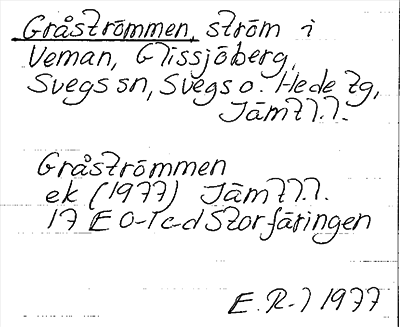 Gråströmmen, ström i
Veman, Glissjöberg,
Svegs sn, Svegs o. Hede tg,
Jämtl.l.
Gråströmmen
ek (1977) Jämtl.l.
17 E 0-1 c-d Storfåringen
E.R-l 1977